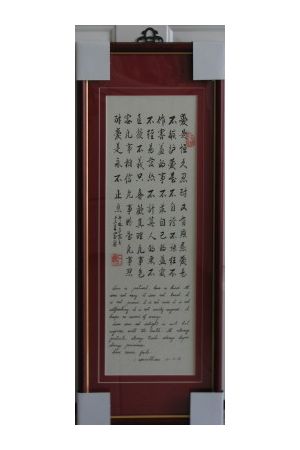 愛是恒久忍耐又有恩慈愛是
不嫉妒愛是不自誇不張狂不
作害羞的事不求自己的益處
不輕易發怒不計算人的惡不
喜歡不義只喜歡真理凡事包
容凡事相信凡事盼望凡事忍
耐愛是永不止息
Love is patient, love is kind. It
does not envy, it does not boast, it
is not proud. It is not rude, it is not
self seeking, it is not easily angered. It
keeps no record of wrongs.
Love does not delight in evil but
rejoices with the truth. It always
protects, always trusts, always hopes,
always perseveres.
Love never fails.